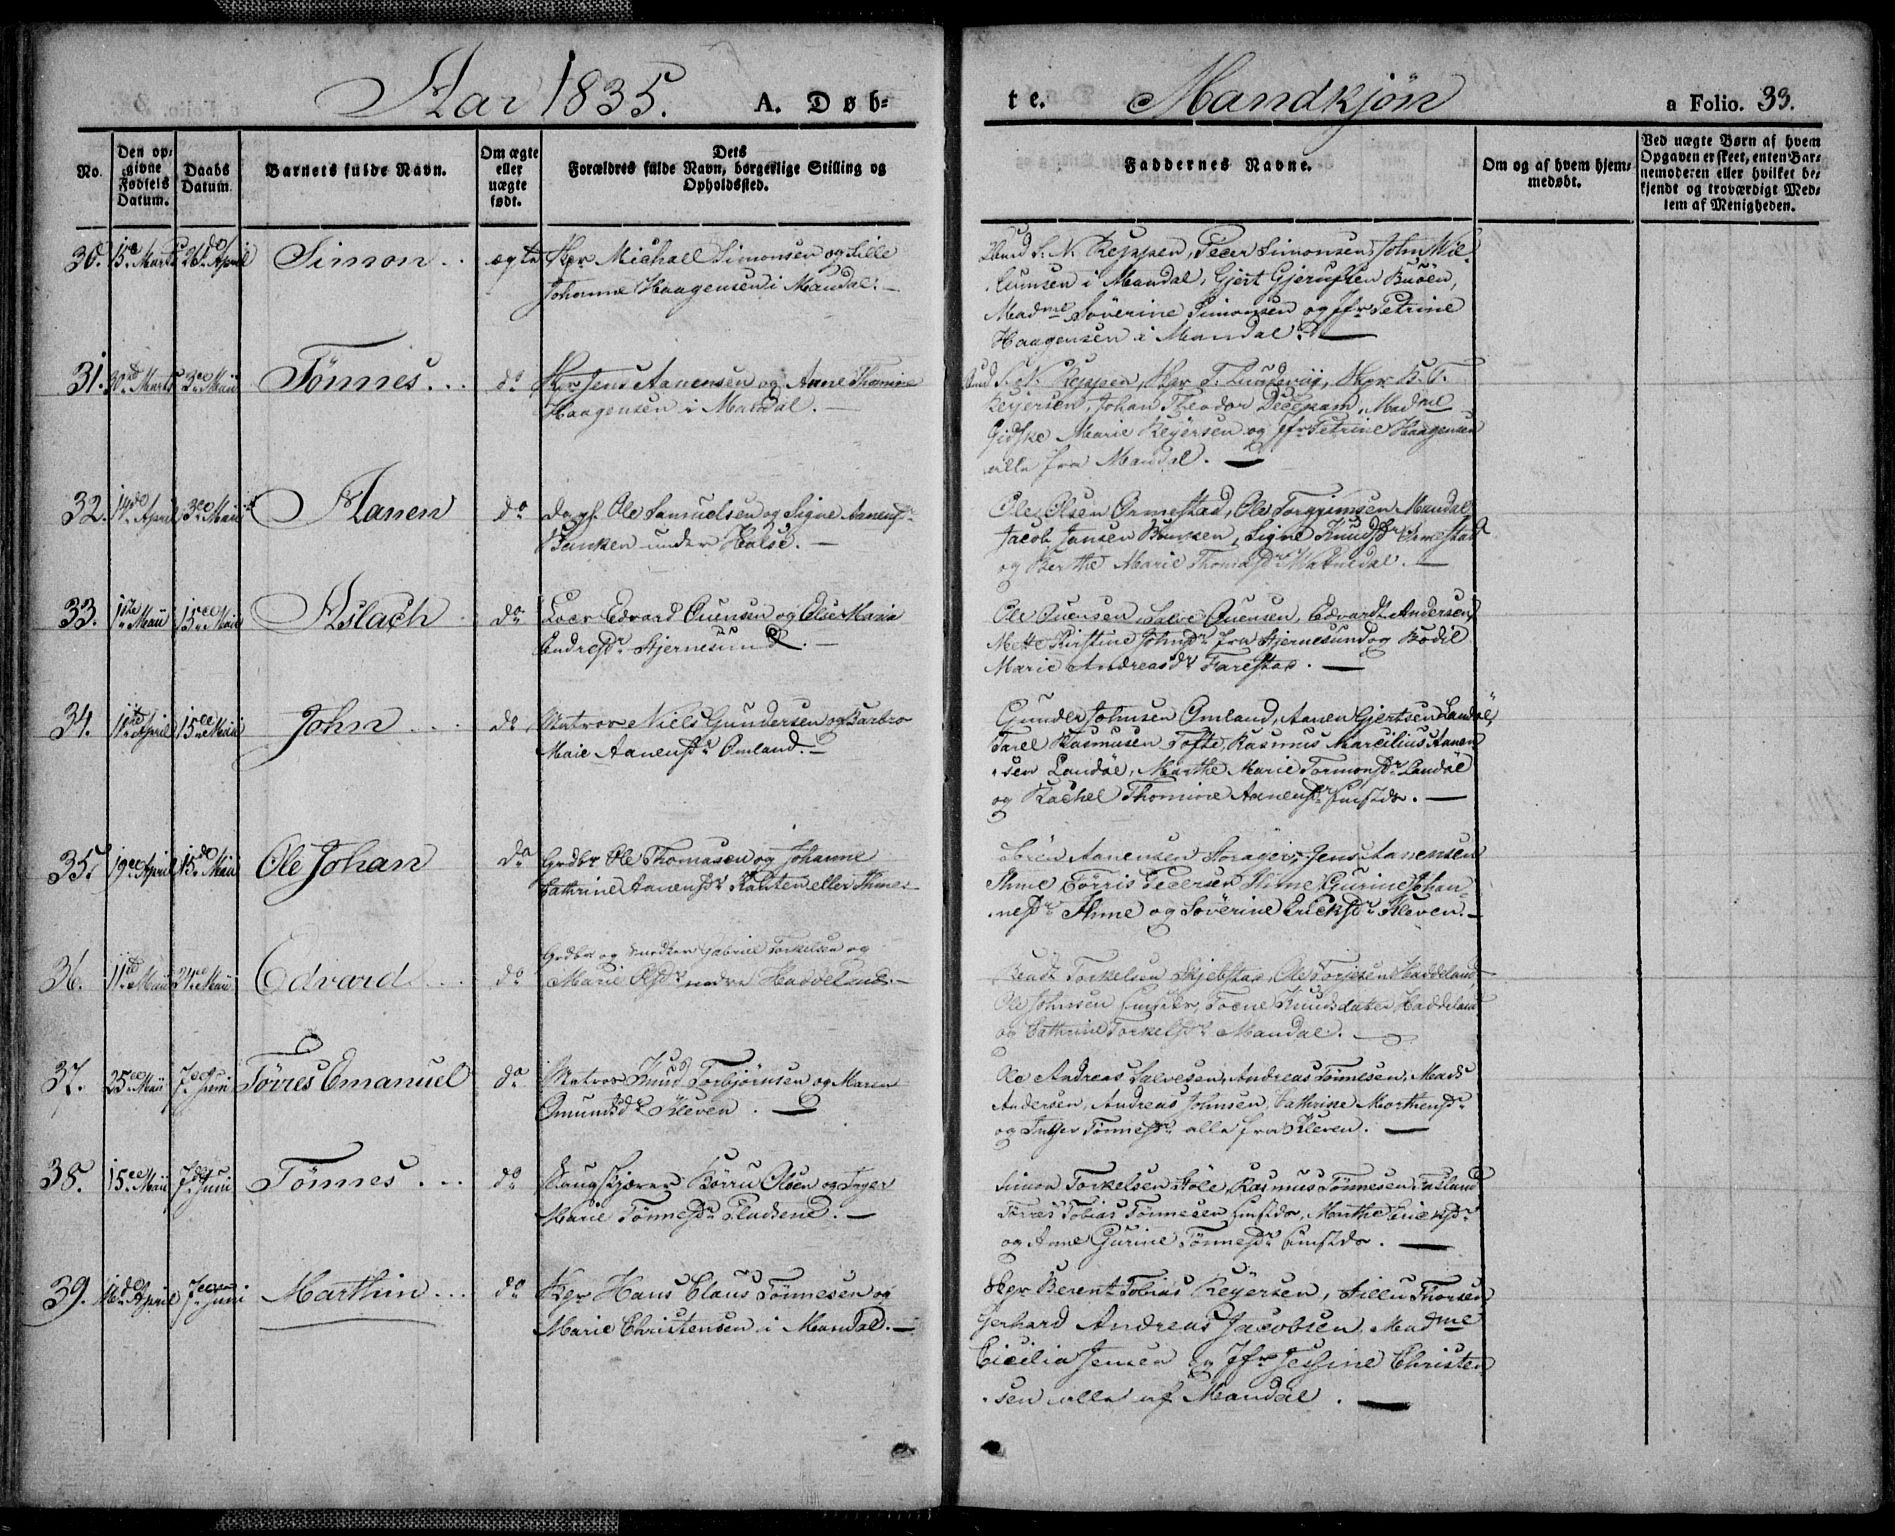 Aar 1835. A. Døb-
te. Mandkjøn a Folio. 33.
No.
Den op-
givne
Fødsels
Datum.
Daabs
Datum.
Barnets fulde Navn.
Om ægte
eller
uægte
født.
Dets
Forældres fulde Navn, borgerlige Stilling og
Opholdssted.
Faddernes Navne.
Om og af hvem hjem-
medøbt.
Ved uægte Børn af hvem
Opgaven er skeet, enten Bar-
nemoderen eller hvilket be-
kjendt og troværdigt Med-
lem af Menigheden.
30. 15de Marts 26de April Simon ægte Skpr Michael Simonsen og Sille
Johanne Haagensen i Mandal.
S. N. Keppen, Peder Simonsen, John
i Mandal, Gjert Buöen,
Madme Söverine Simonsen og Jfr Petrine
Haagensen i Mandal.
31. 30te Marts 3die Mai Tönnes do Skpr Jens Aanensen og Anne Thomine
Haagensen i Mandal.
S. N. Keppen, Skpr T. Skpr B. T.
Reyersen, Johan Theodor Madme
Gidske Marie Reyersen og Jfr Petrine Haagensen
alle fra Mandal.
32. 14de April 3die Mai Aanen do Ole Samuelsen og Signe Aanensdr
under Halse.
Ole Olsen Ormestad, Ole Torgjimsen Mandal
Jacob Jansen Signe Knudsdr Ormestad
og Berthe Marie Thomasdr
33. 1ste Mai 15de Mai Aslach do Edvard Ouensen og Else Maria
Andresdr Hjernesund.
Ole Ouensen, Salve Ouensen, Edvardt Andersen,
Mette Kirstine Johnsdr fra Hjernesund og Bodil
Marie Andreasdr Farestad.
34. 11te April 15de Mai John do Matros Niels Gundersen og Barbro
Marie Aanensdr Omland.
Gunder Johnsen Omland, Aanen Gjertsen Landöe,
Tarel Rasmusen Tofte, Rasmus Marcilius Aanen-
sen Landöe, Marthe Marie Tormonsdr Landöe
og Rachel Thomine Aanensdr
35. 19de April 15de Mai Ole Johan do Grdbr Ole Thomasen og Johanne
Cathrine Aanensdr eller Ihme.
Sören Aanensen Jens Aanensen
Ihme, Törris Pedersen Ihme, Gurine Johan-
nesdr Ihme og Söverine Ericksdr Kleven.
36. 11te Mai 24de Mai Edvard do Grdbr og Snedker Gabriel Torkelsen og
Marie Olsdr nedre Haddeland.
Bendt Torkelsen Skjebstad, Ole Haddeland,
Ole Johnsen Knudsdater Haddeland
og Cathrine Torkelsdr Mandal.
37. 25de Mai 7de Juni Törres Emanuel do Matros Knud Torbjörnsen og Maren
Omundsdr Kleven.
Ole Andreas Salvesen, Andreas Tönnesen, Mads
Andersen, Andreas Johnsen, Cathrine Morthensdr
og Inger Tönnesdr alle fra Kleven.
38. 15de Mai 7de Juni Tönnes do Börru Olsen og Inger
Marie Tönnesdr Pladsene.
Simon Torkelsen Rasmus Tönnesen
Törres Tobias Tönnesen Marthe Ericksdr
og Anne Gurine Tönnesdr
39. 16de April 7de Juni Marthin do Skpr Hans Claus Tönnesen og
Marie Christensen i Mandal.
Skpr Berent Tobias Reyersen, Thorsen
Gerhard Andreas Jacobsen, Madme
Cicilia Jensen og Jfr Jessine Christen-
sen alle af Mandal.